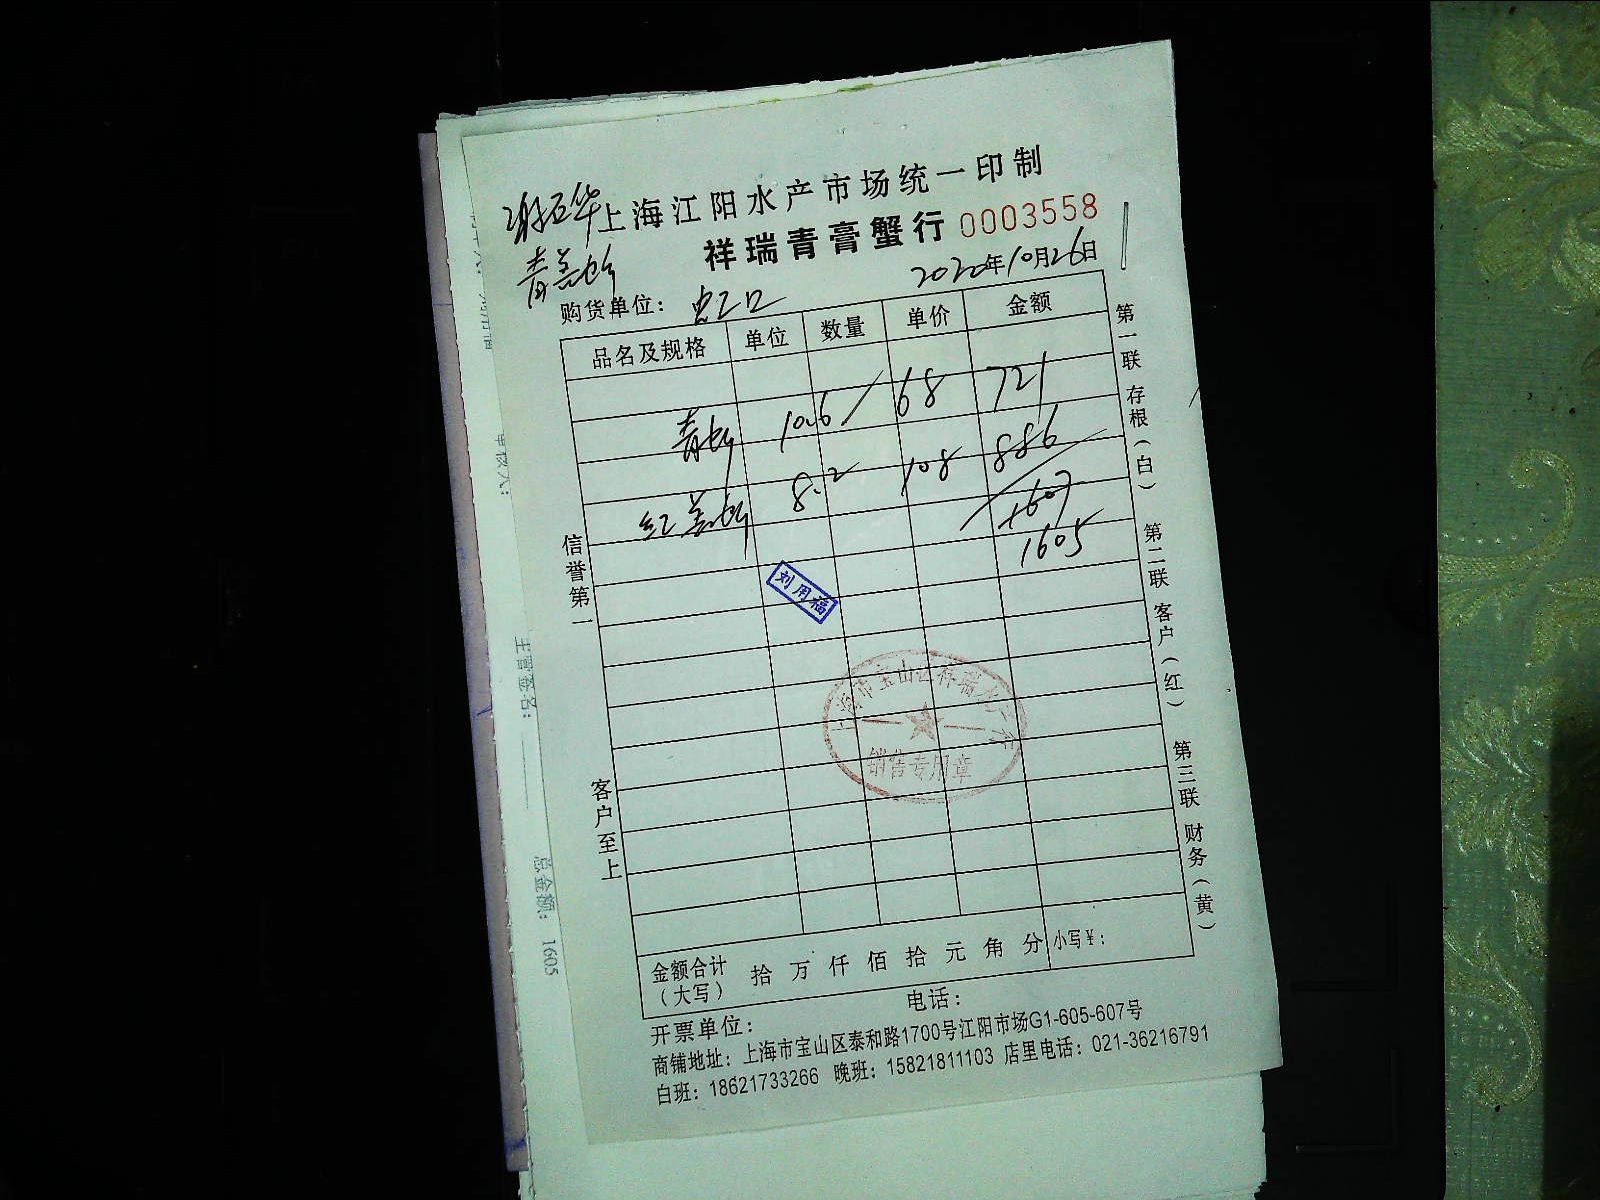 上海江阳水产市场统一印制
祥瑞青膏蟹行 0003558
2020年10月26日
购货单位: 虹口
品名及规格 单位 数量 单价 金额
青蚧 10.6 68 721
红盖蚧 8.2 108 886
1607
1605
刘用福
上海市宝山区祥瑞水产行
销售专用章
金额合计(大写) 拾 万 仟 佰 拾 元 角 分 小写¥:
开票单位: 电话:
商铺地址: 上海市宝山区泰和路1700号江阳市场G1-605-607号
白班: 18621733266 晚班: 15821811103 店里电话: 021-36216791
信誉第一
客户至上
第一联 存根(白)
第二联 客户(红)
第三联 财务(黄)
审核人:
主管签名:
总金额: 1605